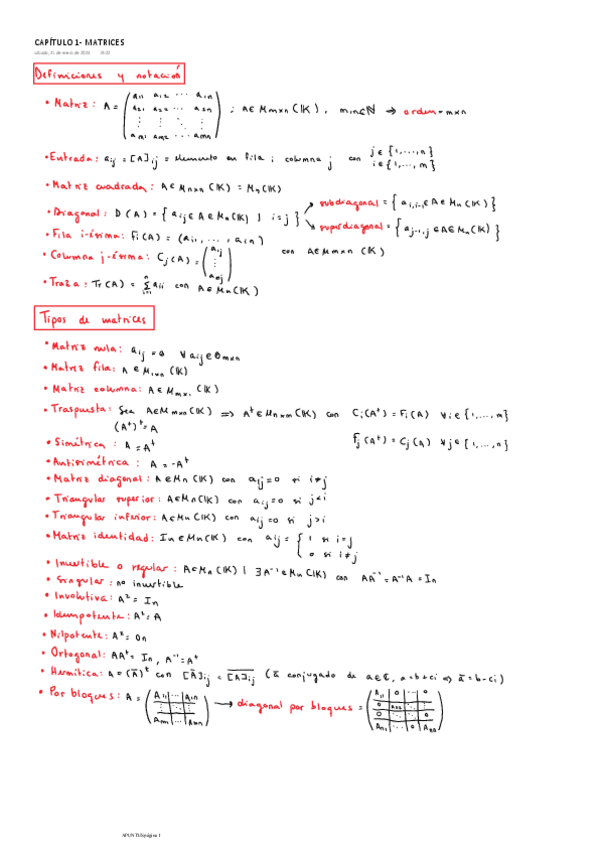 CAPÍTULO 1- MATRICES
sábado, 21 de enero de 2023
Definiciones y notación
• Matriz: A = ( a11 a12 ··· a1n ; a21 a22 ··· a2n ; ⋮ ⋮ ⋱ ⋮ ; am1 am2 ··· amn ) ; A ∈ Mmxn (K), m,n∈ℕ → orden = mxn
• Entrada: aij = [A]ij = elemento en fila i columna j con j ∈ {1,...,n} i ∈ {1,...,m}
• Matriz cuadrada: A∈Mnxn (K) = Mn(K)
• Diagonal: D(A) = { aij ∈ A ∈ Mn(K) | i=j } → subdiagonal = { ai,i-1 ∈ A ∈ Mn(K) }
→ superdiagonal = { aj-1,j ∈ A ∈ Mn(K) }
• Fila i-ésima: Fi(A) = (ai1, ..., ain)
• Columna j-ésima: Cj(A) = ( aij ⋮ anj ) con A∈Mmxn (K)
• Traza: Tr(A) = n Σ i=1 aii con A∈Mn(K)
Tipos de matrices
• Matriz nula: aij = 0 ∀ aij ∈ 0mxn
• Matriz fila: A ∈ M1xn (K)
• Matriz columna: A ∈ Mmx1 (K)
• Traspuesta: Sea A∈Mmxn (K) ⇒ Aᵗ∈Mnxm (K) con Ci(Aᵗ) = Fi(A) ∀i∈{1,...,m}
(Aᵗ)ᵗ = A
Fj(Aᵗ) = Cj(A) ∀j∈{1,...,n}
• Simétrica: A = Aᵗ
• Antisimétrica: A = -Aᵗ
• Matriz diagonal: A∈Mn(K) con aij=0 si i≠j
• Triangular superior: A∈Mn(K) con aij=0 si j<i
• Triangular inferior: A∈Mn(K) con aij=0 si j>i
• Matriz identidad: In∈Mn(K) con aij = { 1 si i=j ; 0 si i≠j
• Invertible o regular: A∈Mn(K) | ∃A⁻¹∈Mn(K) con AA⁻¹ = A⁻¹A = In
• Singular: no invertible
• Involutiva: A² = In
• Idempotente: A² = A
• Nilpotente: A² = 0n
• Ortogonal: AAᵗ = In, A⁻¹ = Aᵗ
• Hermítica: A = (Ā)ᵗ con [Ā]ij = [A]ij (ā conjugado de a∈ℂ, a=b+ci ⇒ ā=b-ci)
• Por bloques: A = ( A11 ··· A1n ; ⋮ ⋱ ⋮ ; Am1 ··· Amn ) → diagonal por bloques = ( A11 0 ··· 0 ; 0 A22 ··· 0 ; ··· 0 Ann )
APUNTES página 1